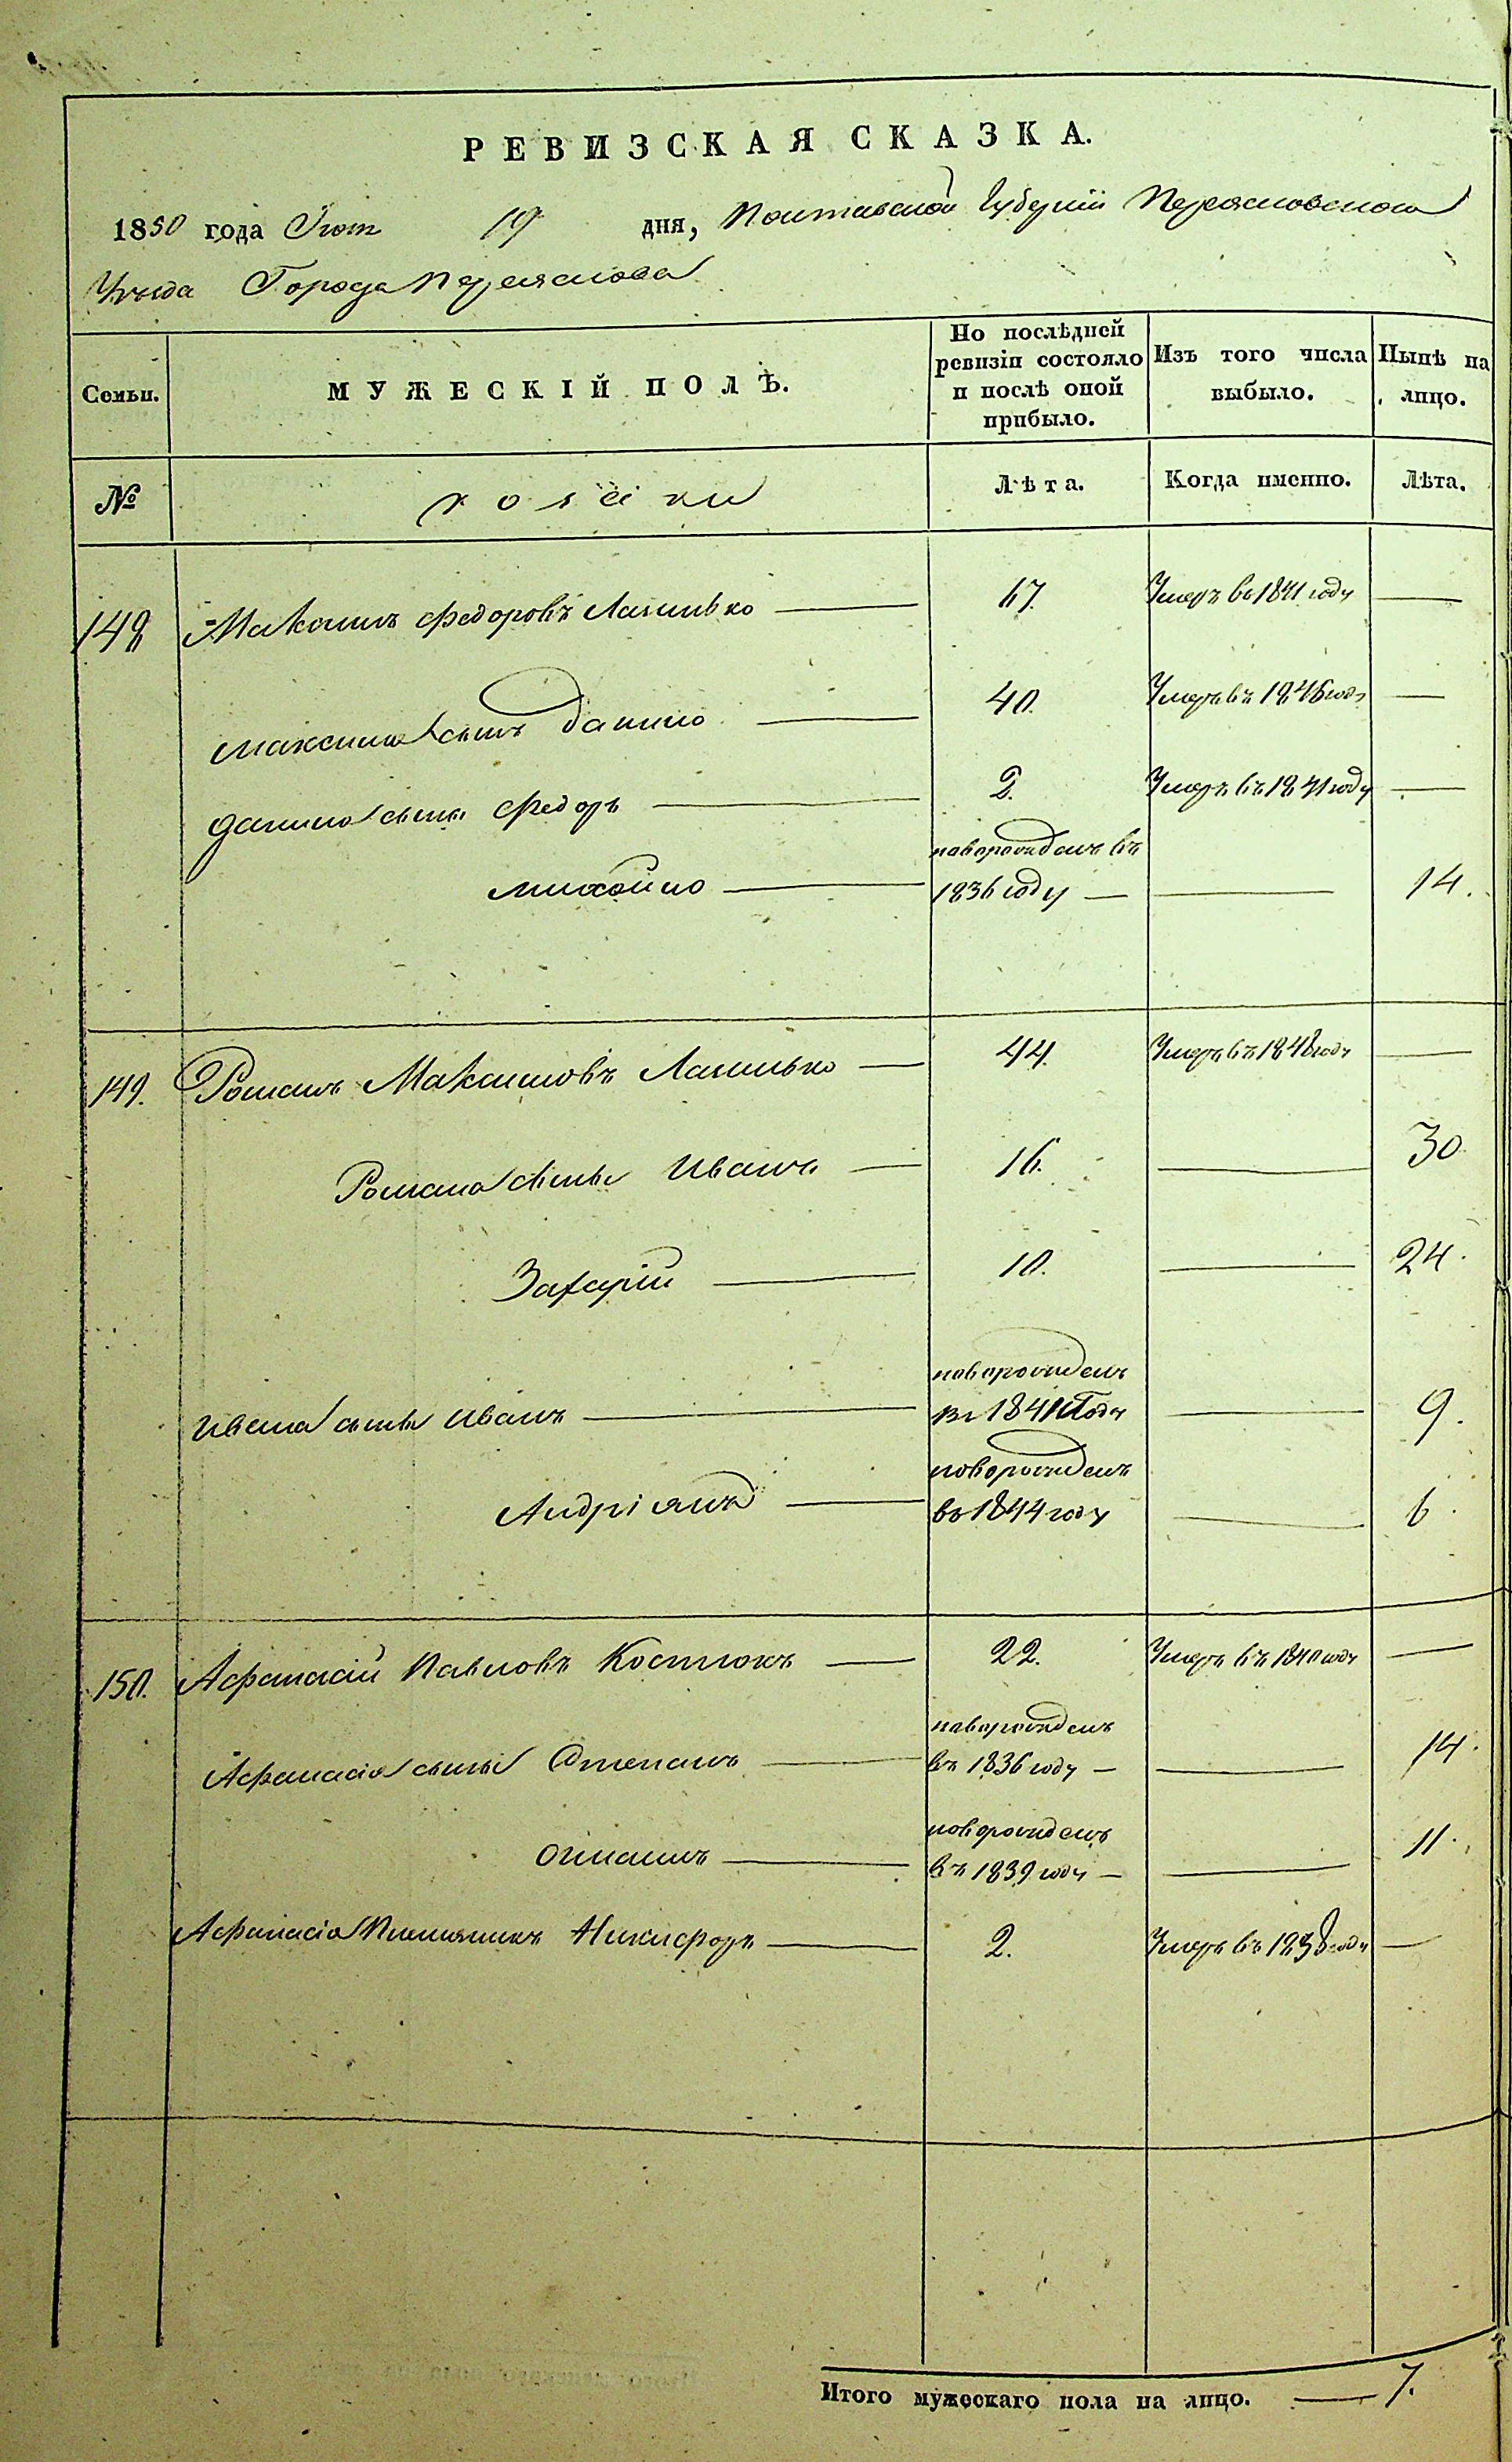 РЕВИЗСКАЯ СКАЗКА.
1850 года 19 дня, Полтавской Губерніи Переяславского
Уезда Города Переяслова
Семьи. МУЖЕСКІЙ ПОЛЪ. По послѣдней ревизіи состояло и послѣ оной прибыло. Изъ того числа выбыло. Нынѣ на лицо.
№ Лѣта. Когда именно. Лѣта.
148 Максимъ Федоровъ 67. Умеръ въ 1841 году —
Максима сынъ Данило 40. Умеръ въ 1846 году —
Данила сынъ Федоръ 2. Умеръ въ 1841 году —
Михайло новорожденъ въ 1836 году — — 14.
149. Романъ Максимовъ 44. Умеръ въ 1848 году —
Романа сынъ Иванъ 16. — 30
Захарій 10. — 24.
Ивана сынъ Иванъ новорожденъ въ 1841 Году — 9.
Андріянъ новорожденъ въ 1844 году — 6.
150. Афанасій Павловъ Костюкъ 22. Умеръ въ 1840 году —
Афанасія сынъ Степанъ новорожденъ въ 1836 году — — 14.
новорожденъ въ 1839 году — — 11.
Афанасія Племянникъ Никифоръ 2. Умеръ въ 1838 году —
Итого мужескаго пола на лицо. — 7.